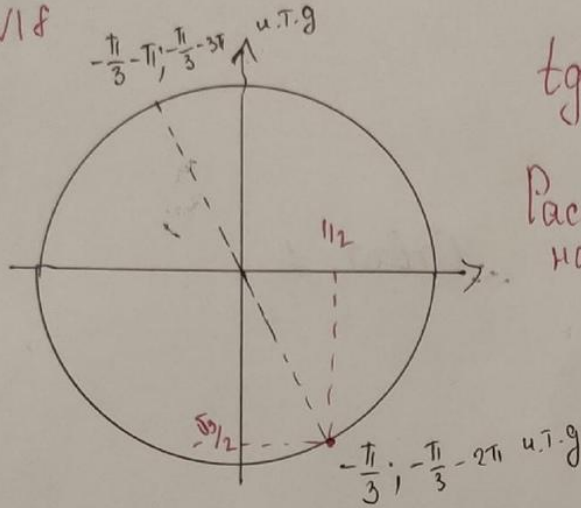 √18
-π/3 - π; -π/3 - 3π и.т.д
tg
Рас
но
1/2
√3/2
-π/3; -π/3 - 2π и.т.д